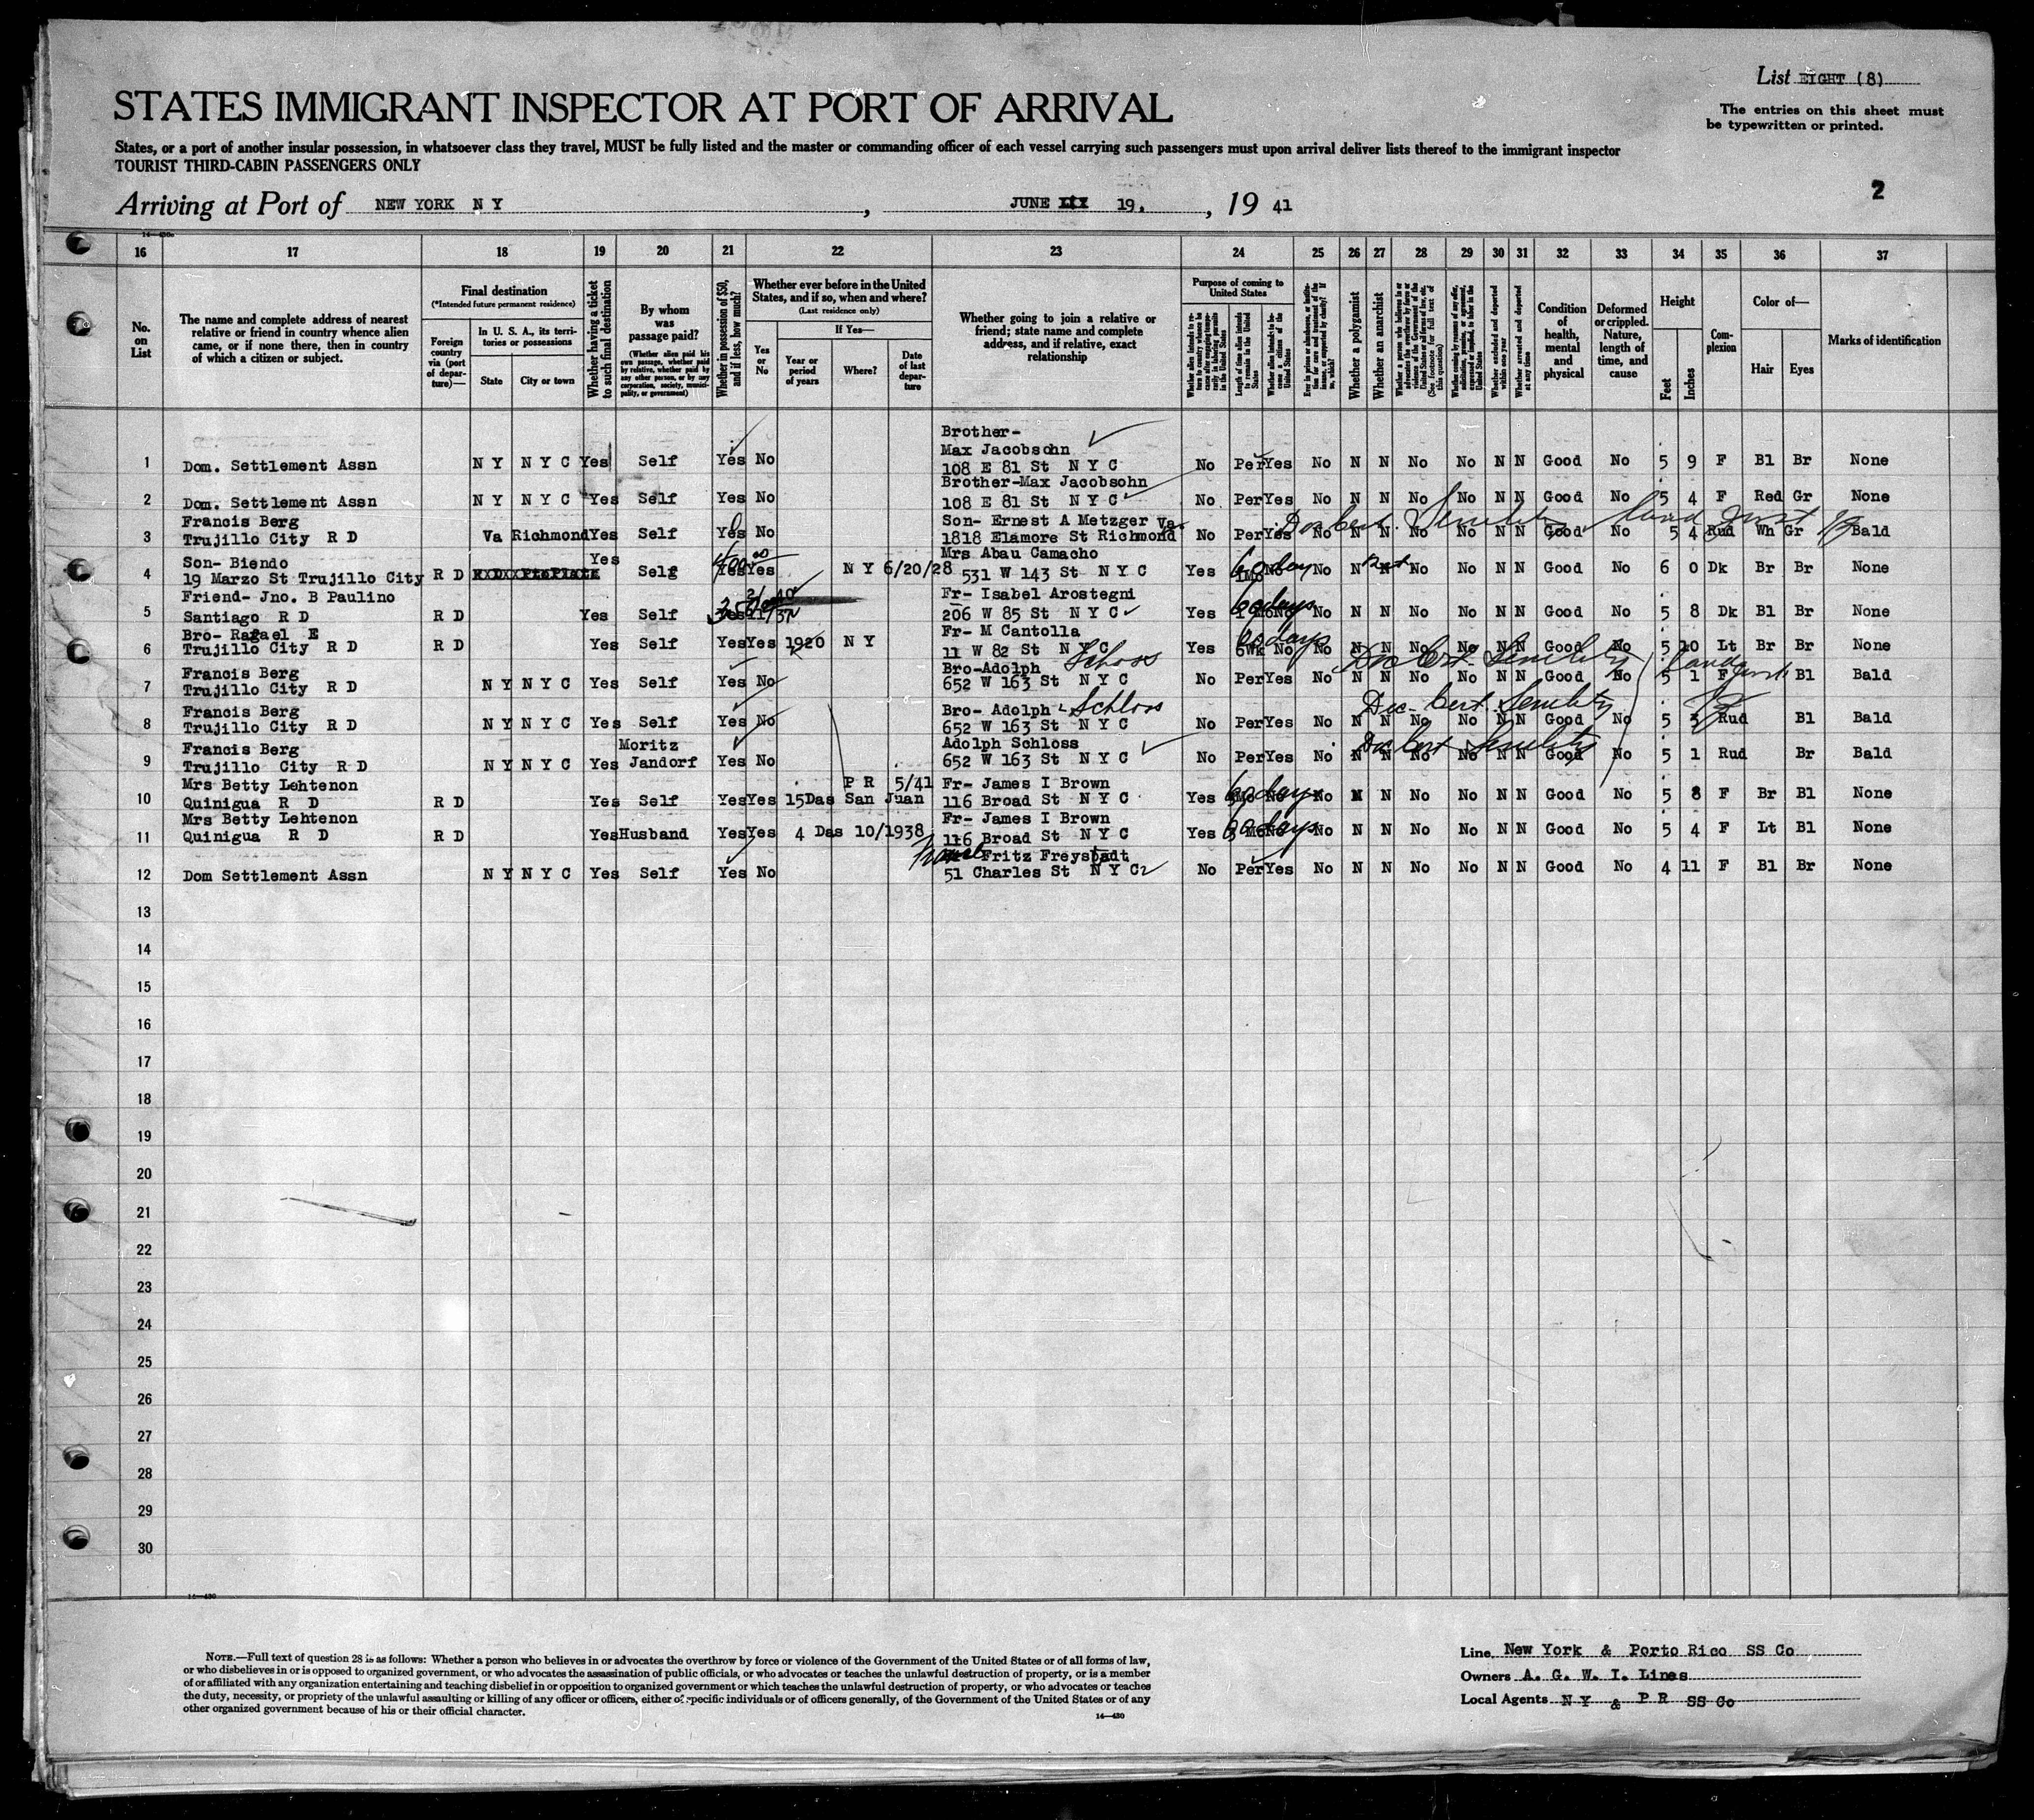 List EIGHT (8)
STATES IMMIGRANT INSPECTOR AT PORT OF ARRIVAL
The entries on this sheet must be typewritten or printed.
States, or a port of another insular possession, in whatsoever class they travel, MUST be fully listed and the master or commanding officer of each vessel carrying such passengers must upon arrival deliver lists thereof to the immigrant inspector
TOURIST THIRD-CABIN PASSENGERS ONLY
2
Arriving at Port of NEW YORK N Y, JUNE 19, 19 41
14-430
16 17 18 19 20 21 22 23 24 25 26 27 28 29 30 31 32 33 34 35 36 37
No. on List
The name and complete address of nearest relative or friend in country whence alien came, or if none there, then in country of which a citizen or subject.
Final destination
(*Intended future permanent residence)
Foreign country via (port of departure)—
In U. S. A., its territories or possessions
State
City or town
Whether having a ticket to such final destination
By whom was passage paid?
(Whether alien paid his own passage, whether paid by relative, whether paid by any other person, or by any corporation, society, municipality, or government)
Whether in possession of $50, and if less, how much?
Whether ever before in the United States, and if so, when and where?
(Last residence only)
Yes or No
If Yes—
Year or period of years
Where?
Date of last departure
Whether going to join a relative or friend; state name and complete address, and if relative, exact relationship
Purpose of coming to United States
Length of time alien intends to remain in the United States
Whether a polygamist
Whether an anarchist
(See footnote for full text of this question)
Whether excluded and deported within one year
Whether arrested and deported at any time
Condition of health, mental and physical
Deformed or crippled. Nature, length of time, and cause
Height
Feet
Inches
Complexion
Color of—
Hair
Eyes
Marks of identification
Brother-
Max Jacobsohn
1 Dom. Settlement Assn N Y N Y C Yes Self Yes No 108 E 81 St N Y C No Per Yes No N N No No N N Good No 5 9 F Bl Br None
Brother-Max Jacobsohn
2 Dom. Settlement Assn N Y N Y C Yes Self Yes No 108 E 81 St N Y C No Per Yes No N N No No N N Good No 5 4 F Red Gr None
Francis Berg Son- Ernest A Metzger Va
3 Trujillo City R D Va Richmond Yes Self Yes No 1818 Elamore St Richmond No Per Yes No N N No No N N Good No 5 4 Rud Wh Gr Bald
Son- Biendo Yes Mrs Abau Camacho
4 19 Marzo St Trujillo City R D Self Yes Yes N Y 6/20/28 531 W 143 St N Y C Yes 60 days No N N No No N N Good No 6 0 Dk Br Br None
Friend- Jno. B Paulino Fr- Isabel Arostegni
5 Santiago R D R D Yes Self 206 W 85 St N Y C Yes 60 days No N N No No N N Good No 5 8 Dk Bl Br None
Bro- Rafael E Fr- M Cantolla
6 Trujillo City R D R D Yes Self Yes Yes 1920 N Y 11 W 82 St N Y C Yes 6Wk 60 days No No N N No No N N Good No 5 10 Lt Br Br None
Francis Berg Bro-Adolph Schloss
7 Trujillo City R D N Y N Y C Yes Self Yes No 652 W 163 St N Y C No Per Yes No N N No No N N Good No 5 1 F Bl Bald
Francis Berg Bro- Adolph Schloss
8 Trujillo City R D N Y N Y C Yes Self Yes No 652 W 163 St N Y C No Per Yes No N N No No N N Good No 5 Rud Bl Bald
Doc. Cert. Senility
Francis Berg Moritz Adolph Schloss
9 Trujillo City R D N Y N Y C Yes Jandorf Yes No 652 W 163 St N Y C No Per Yes No N N No No N N Good No 5 1 Rud Br Bald
Mrs Betty Lehtenon P R 5/41 Fr- James I Brown
10 Quinigua R D R D Yes Self Yes Yes 15Das San Juan 116 Broad St N Y C Yes 60 days No N N No No N N Good No 5 8 F Br Bl None
Mrs Betty Lehtenon Fr- James I Brown
11 Quinigua R D R D Yes Husband Yes Yes 4 Das 10/1938 116 Broad St N Y C Yes 60 days No N N No No N N Good No 5 4 F Lt Bl None
Fritz Freystadt
12 Dom Settlement Assn N Y N Y C Yes Self Yes No 51 Charles St N Y C No Per Yes No N N No No N N Good No 4 11 F Bl Br None
13
14
15
16
17
18
19
20
21
22
23
24
25
26
27
28
29
30
14-430
NOTE.—Full text of question 28 is as follows: Whether a person who believes in or advocates the overthrow by force or violence of the Government of the United States or of all forms of law,
or who disbelieves in or is opposed to organized government, or who advocates the assassination of public officials, or who advocates or teaches the unlawful destruction of property, or is a member
of or affiliated with any organization entertaining and teaching disbelief in or opposition to organized government or which teaches the unlawful destruction of property, or who advocates or teaches
the duty, necessity, or propriety of the unlawful assaulting or killing of any officer or officers, either of specific individuals or of officers generally, of the Government of the United States or of any
other organized government because of his or their official character.
14-430
Line New York & Porto Rico SS Co
Owners A. G. W. I. Lines
Local Agents N Y & P R SS Co